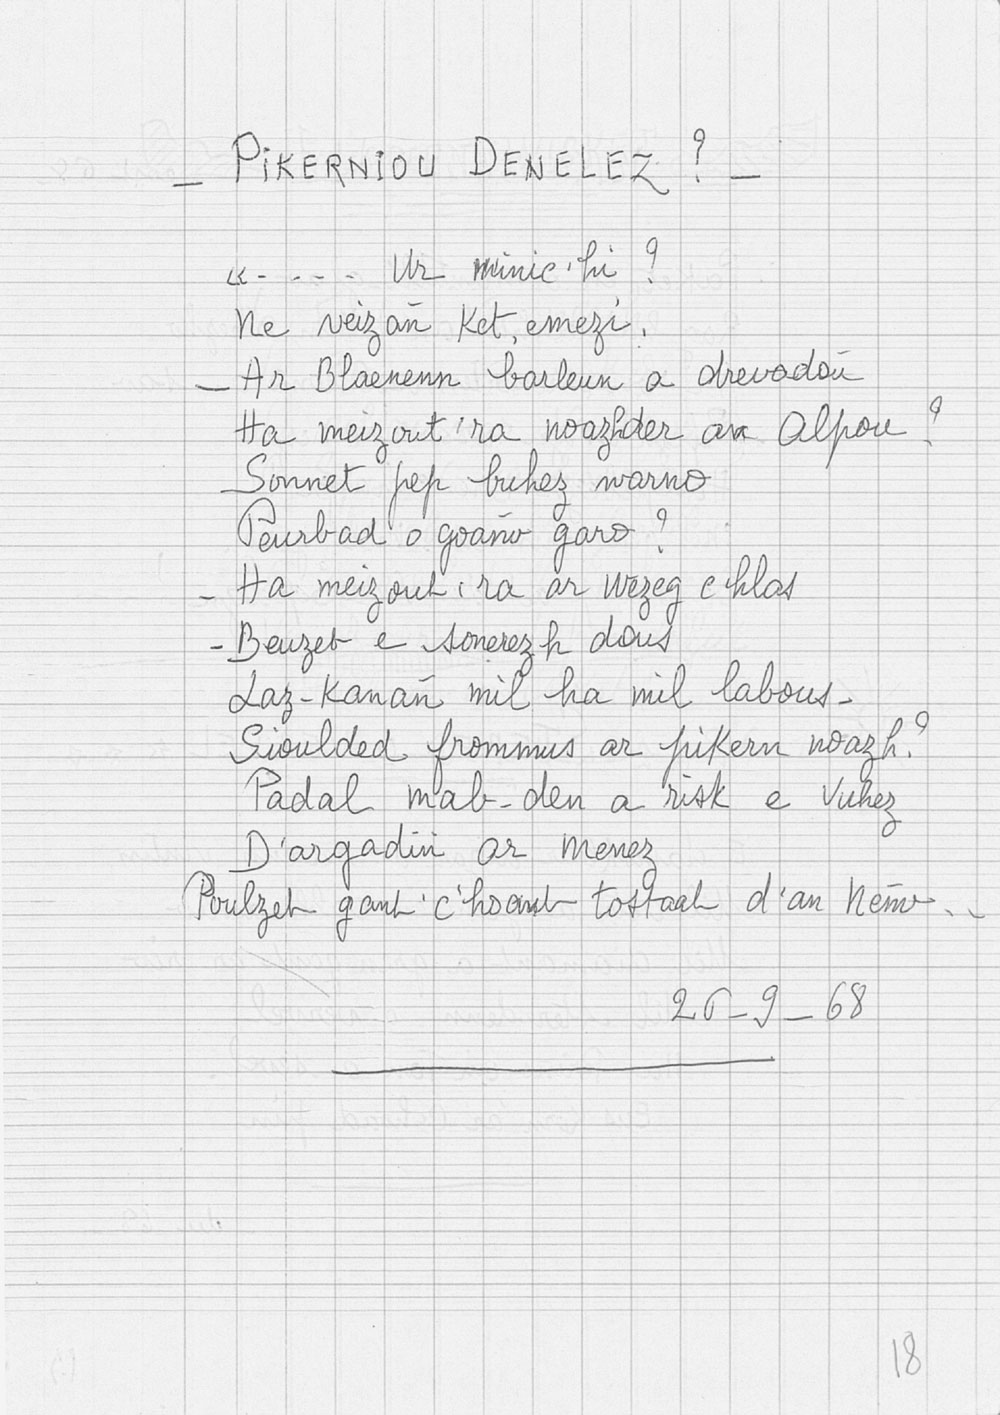 _ PIKERNIOU DENELEZ ? _
«- - - - Ur minic'hi ?
Ne veizañ Ket, emezi.
_ Ar Blaenenn barleun a drevadoù
Ha meizout 'ra noazhder an Alpou ?
Sonnet pep buhez warno
Peurbad o goañv garo ?
- Ha meizout 'ra ar wezeg c'hlas
- Beuzet e sonerezh dous
Laz-Kanañ mil ha mil labous -
Siouldед frommus ar pikern noazh. ?
Padal mab-den a risk e Vuhez
D'argadiñ ar Menez
Poulzet gant 'c'hoant tostaat d'an Neñv...
26_9_68
18